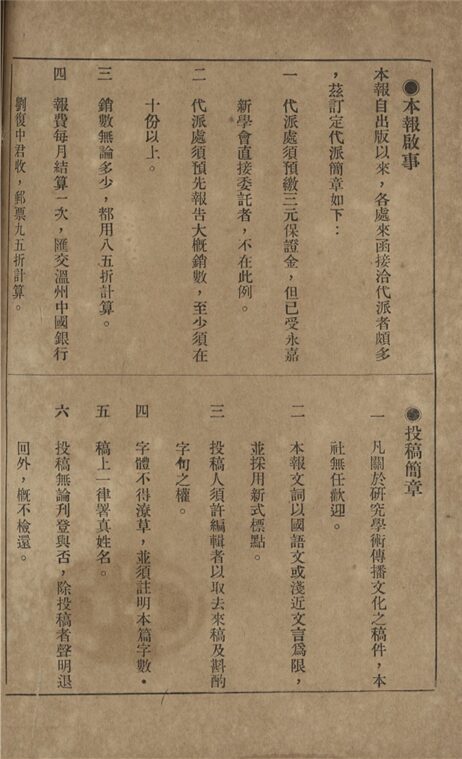 ◉本報啟事
本報自出版以來，各處來函接洽代派者頗多
，茲訂定代派簡章如下：
一　代派處須預繳三元保證金，但已受永嘉
新學會直接委託者，不在此例。
二　代派處須預先報告大概銷數，至少須在
十份以上。
三　銷數無論多少，都用八五折計算。
四　報費每月結算一次，匯交溫州中國銀行
劉復中君收，郵票九五折計算。
◉投稿簡章
一　凡關於研究學術傳播文化之稿件，本
社無任歡迎。
二　本報文詞以國語文或淺近文言爲限，
並採用新式標點。
三　投稿人須許編輯者以取去來稿及斟酌
字句之權。
四　字體不得潦草，並須註明本篇字數。
五　稿上一律署真姓名。
六　投稿無論刋登與否，除投稿者聲明退
回外，概不檢還。